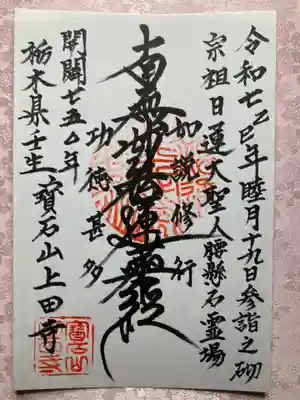 令和七乙巳年睦月十九日参詣之砌
宗祖日蓮大聖人腰懸石霊場
如説修行
南無妙法蓮華経
功徳甚多
開闢七五〇年
栃木県壬生寳石山上田寺